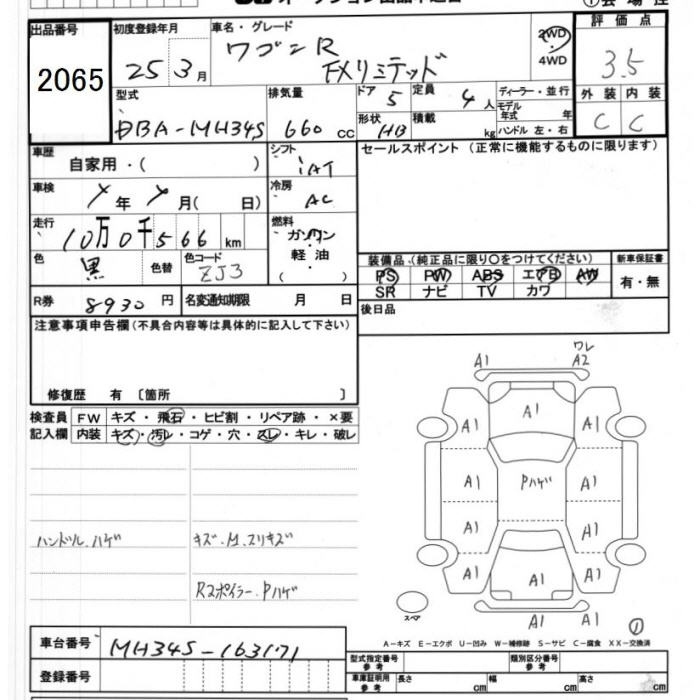 出品番号 初度登録年月 車名・グレード 評価点
2065 25 3月 ワゴンR FXリミテッド 2WD・4WD 3.5
型式 排気量 ドア 5 定員 4人 ディーラー・並行 外装 内装
DBA-MH34S 660cc 形状 HB 積載 kg モデル年式 年 C C
ハンドル 左・右
車歴 自家用・( ) シフト iAT セールスポイント (正常に機能するものに限ります)
車検 年 月( 日) 冷房 AC
走行 10万0千566km 燃料 ガソリン・軽油・( )
色 黒 色替 色コード ZJ3 装備品(純正品に限り○をつけてください) 新車保証書
PS PW ABS エアB AW 有・無
SR ナビ TV カワ
R券 8930円 名変通知期限 月 日 後日品
注意事項申告欄(不具合内容等は具体的に記入して下さい)
修復歴 有〔箇所 〕
検査員 FW キズ・飛石・ヒビ割・リペア跡・×要
記入欄 内装 キズ・汚レ・コゲ・穴・スレ・キレ・破レ
ワレ
A1 A2
A1 A1 A1
A1 Pハゲ A1
A1 A1
A1 A1 A1
A1 A1
ハンドル.ハゲ キズ.M.スリキズ
Rスポイラー.Pハゲ
スペア ①
A-キズ E-エクボ U-凹み W-補修跡 S-サビ C-腐食 XX-交換済
車台番号 MH34S-163171
型式指定番号 参考 類別区分番号 参考
登録番号 車庫証明用 参考 長さ cm 幅 cm 高さ cm